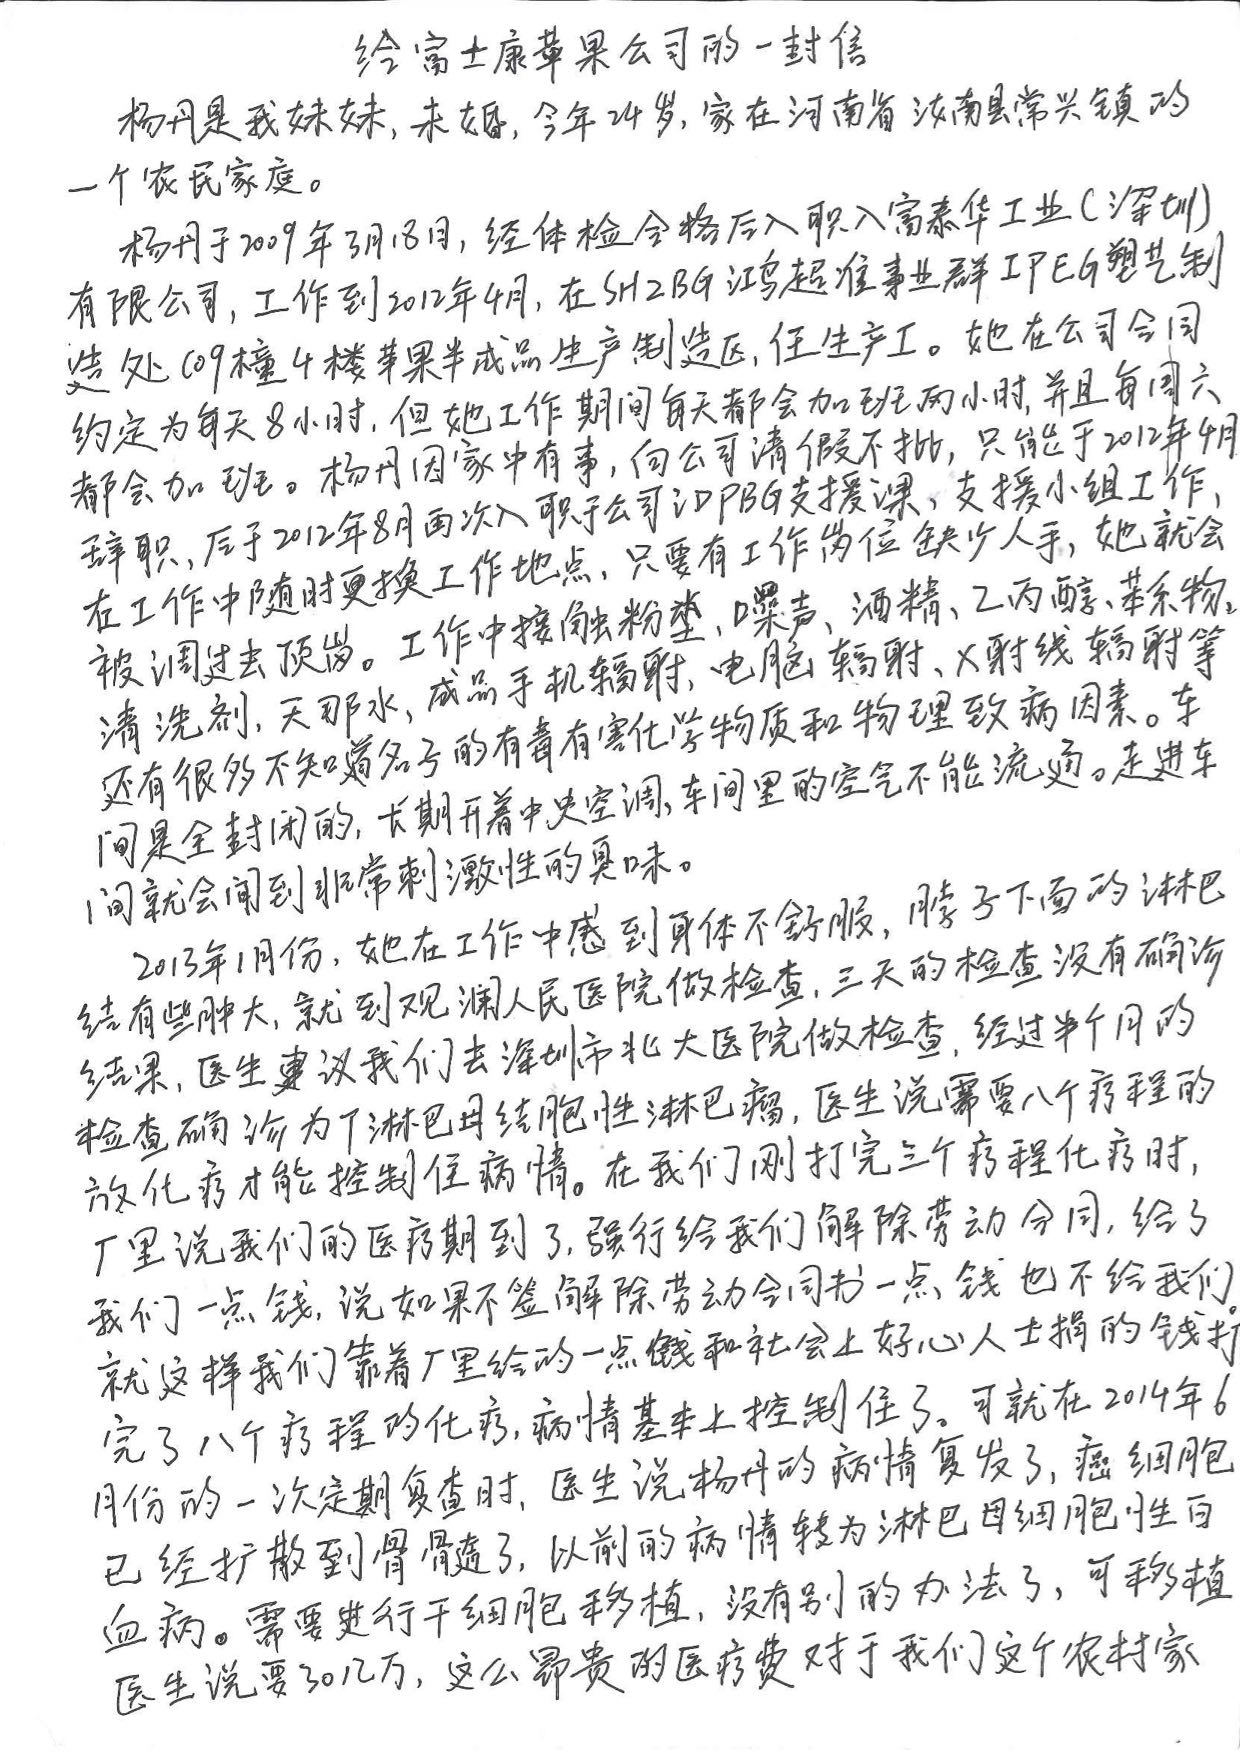 给富士康苹果公司的一封信
杨丹是我妹妹,未婚,今年24岁,家在河南省汝南县常兴镇的
一个农民家庭。
杨丹于2009年3月18日,经体检合格后入职入富泰华工业(深圳)
有限公司,工作到2012年4月,在SHZBG鸿超准事业群IPEG塑艺制
造处C09橦4楼苹果半成品生产制造区,任生产工。她在公司合同
约定为每天8小时,但她工作期间每天都会加班两小时,并且每周六
都会加班。杨丹因家中有事,向公司请假不批,只能于2012年4月
辞职,后于2012年8月再次入职于公司iDPBG支援课、支援小组工作,
在工作中随时更换工作地点,只要有工作岗位缺少人手,她就会
被调过去顶岗。工作中接触粉尘、噪声、酒精、乙丙醇、苯系物、
清洗剂,天那水,成品手机辐射、电脑辐射、X射线辐射等
还有很多不知道名号的有毒有害化学物质和物理致病因素。车
间是全封闭的,长期开着中央空调,车间里的空气不能流通。走进车
间就会闻到非常刺激性的臭味。
2013年1月份,她在工作中感到身体不舒服,脖子下面的淋巴
结有些肿大,就到观澜人民医院做检查,三天的检查没有确诊
结果,医生建议我们去深圳市北大医院做检查,经过半个月的
检查确诊为T淋巴母结胞性淋巴瘤,医生说需要八个疗程的
放化疗才能控制住病情。在我们刚打完三个疗程化疗时,
厂里说我们的医疗期到了,强行给我们解除劳动合同,给了
我们一点钱,说如果不签解除劳动合同书一点钱也不给我们。
就这样我们靠着厂里给的一点钱和社会上好心人士捐的钱打
完了八个疗程的化疗,病情基本上控制住了。可就在2014年6
月份的一次定期复查时,医生说杨丹的病情复发了,癌细胞
已经扩散到骨髓了,以前的病情转为淋巴母细胞性白
血病。需要进行干细胞移植,没有别的办法了,可移植
医生说要30几万,这么昂贵的医疗费对于我们这个农村家